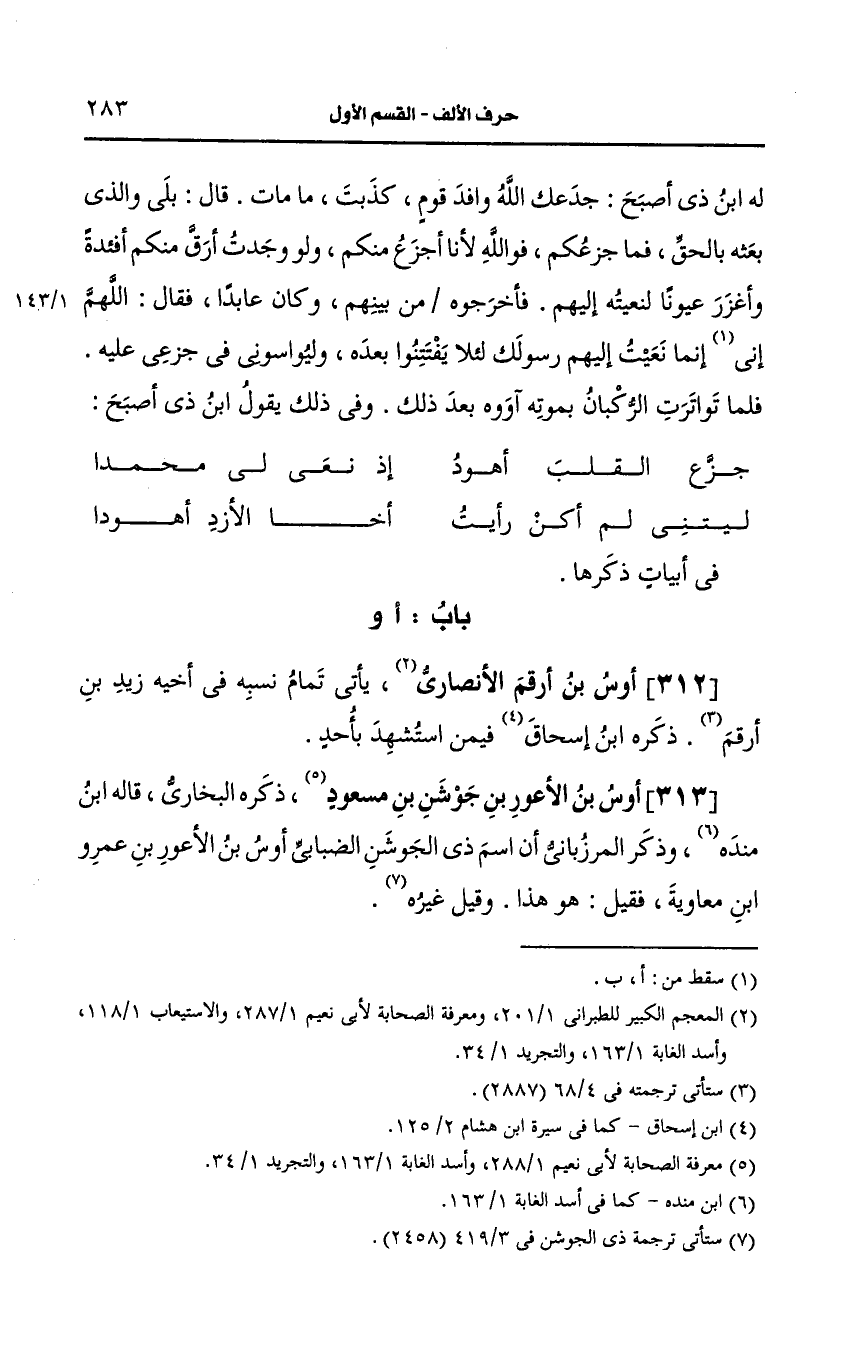 حرف الألف - القسم الأول ٢٨٣
له ابنُ ذى أصبَحَ : جدَعك اللَّهُ وافدَ قومٍ ، كذَبتَ ، ما مات . قال : بلَى والذى
بعَثه بالحقِّ ، فما جزعُكم ، فواللَّهِ لأنا أجزَعُ منكم ، ولو وجَدتُ أرَقَّ منكم أفئدةً
وأغزَرَ عيونًا لنعيتُه إليهم . فأخرَجوه / من بينِهم ، وكان عابدًا ، فقال : اللَّهمَّ ١٤٣/١
إنى(١) إنما نَعَيْتُ إليهم رسولَك لئلا يَفْتَتِنُوا بعدَه ، وليُواسونِى فى جزعِى عليه .
فلما تَواتَرَتِ الرُّكْبانُ بموتِه آوَوه بعدَ ذلك . وفى ذلك يقولُ ابنُ ذى أصبَحَ :
جــزَّع الــقــلــبَ أهــودُ إذ نــعَــى لــى مــحــمــدا
لــيــتــنِــى لــم أكــنْ رأيــتُ أخــــا الأزدِ أهــــودا
فى أبياتٍ ذكَرها .
بابُ : أ و
[٣١٢] أوسُ بنُ أرقمَ الأنصارىُّ(٢) ، يأتى تَمامُ نسبِه فى أخيه زيدِ بنِ
أرقمَ(٣) . ذكَره ابنُ إسحاقَ(٤) فيمن استُشهِدَ بأُحدٍ .
[٣١٣] أوسُ بنُ الأعورِ بنِ جَوْشَنِ بنِ مسعودٍ(٥) ، ذكَره البخارىُّ ، قاله ابنُ
منده(٦) ، وذكَر المرزُبانىُّ أن اسمَ ذى الجَوشَنِ الضبابىِّ أوسُ بنُ الأعورِ بنِ عمرِو
ابنِ معاويةَ ، فقيل : هو هذا . وقيل غيرُه(٧) .
(١) سقط من : أ ، ب .
(٢) المعجم الكبير للطبرانى ٢٠١/١، ومعرفة الصحابة لأبى نعيم ٢٨٧/١، والاستيعاب ١١٨/١،
وأسد الغابة ١٦٣/١، والتجريد ٣٤/١.
(٣) ستأتى ترجمته فى ٦٨/٤ (٢٨٨٧) .
(٤) ابن إسحاق - كما فى سيرة ابن هشام ١٢٥/٢.
(٥) معرفة الصحابة لأبى نعيم ٢٨٨/١، وأسد الغابة ١٦٣/١، والتجريد ٣٤/١.
(٦) ابن منده - كما فى أسد الغابة ١٦٣/١.
(٧) ستأتى ترجمة ذى الجوشن فى ٤١٩/٣ (٢٤٥٨) .